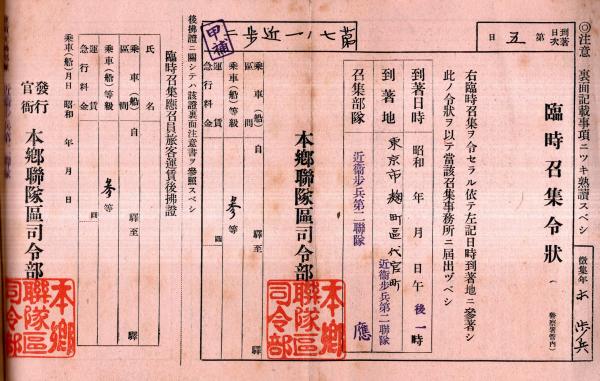 ◎注意 裏面記載事項ニツキ熟讀スベシ
到著日次 第五日
第七ノ一近步二
甲補
臨時召集令狀
（警察署管內）
徵集年
步兵
右臨時召集ヲ令セラル依テ左記日時到著地ニ參著シ
此ノ令狀ヲ以テ當該召集事務所ニ屆出ヅベシ
到著日時 昭和 年 月 日午後一時
到著地 東京市麴町區代官町
近衞步兵第二聯隊
召集部隊 近衞步兵第二聯隊 應
本鄕聯隊區司令部
本鄕聯隊區司令部
乘車(船)區間 自 驛至 驛
乘車(船)等級 參等
運賃
急行料金 圓
後拂證ニ關シテハ該證裏面注意書ヲ參照スベシ
臨時召集應召員旅客運賃後拂證
氏名
乘車(船)區間 自 驛至 驛
乘車(船)等級 參等
運賃
急行料金 圓
乘車(船)月日 昭和 年 月 日
發行官衙 本鄕聯隊區司令部
本鄕聯隊區司令部
近衞步兵第二聯隊